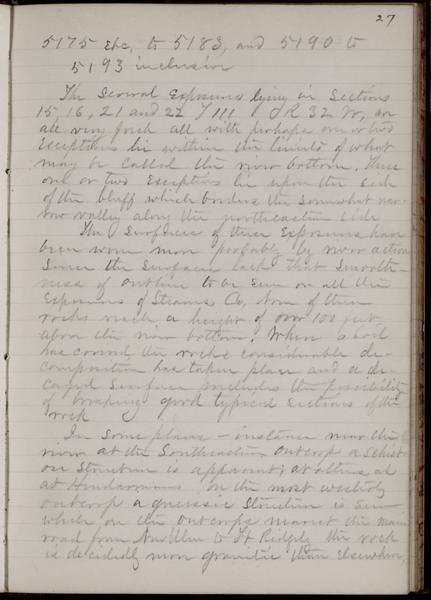 27
5175 etc, to 5183, and 5190 to
5193 inclusive
The Several Exposures lying in Sections
15, 16, 21 and 22 T 111 R 32 W, are
all very fresh all with perhaps one or two
Exceptions lie within the limits of what
may be called the river bottom. These
one or two Exceptions lie upon the side
of the bluff which borders the somewhat nar-
row valley along the northeastern side
The Surfaces of these Exposures have
been worn more probably by river action
Since the Surfaces lack that smooth-
ness of outline to be seen on all the
Exposures of Stearns Co, None of these
rocks reach a height of over 100 feet
above the river bottom. Where a soil
has covered the rocks considerable de-
composition has taken place and a de-
cayed Surface precludes the possibility
of breaking good typical Sections of the
rock
In some places - instance near the
river at the Southeastern outcrop a schist-
ose structure is apparent; at others as
at Hindermanns on the most westerly
outcrop a gneissic structure is seen
which on the outcrops nearest the main
road from New Ulm to Ft Ridgely the rock
is decidedly more granitic than elsewhere,